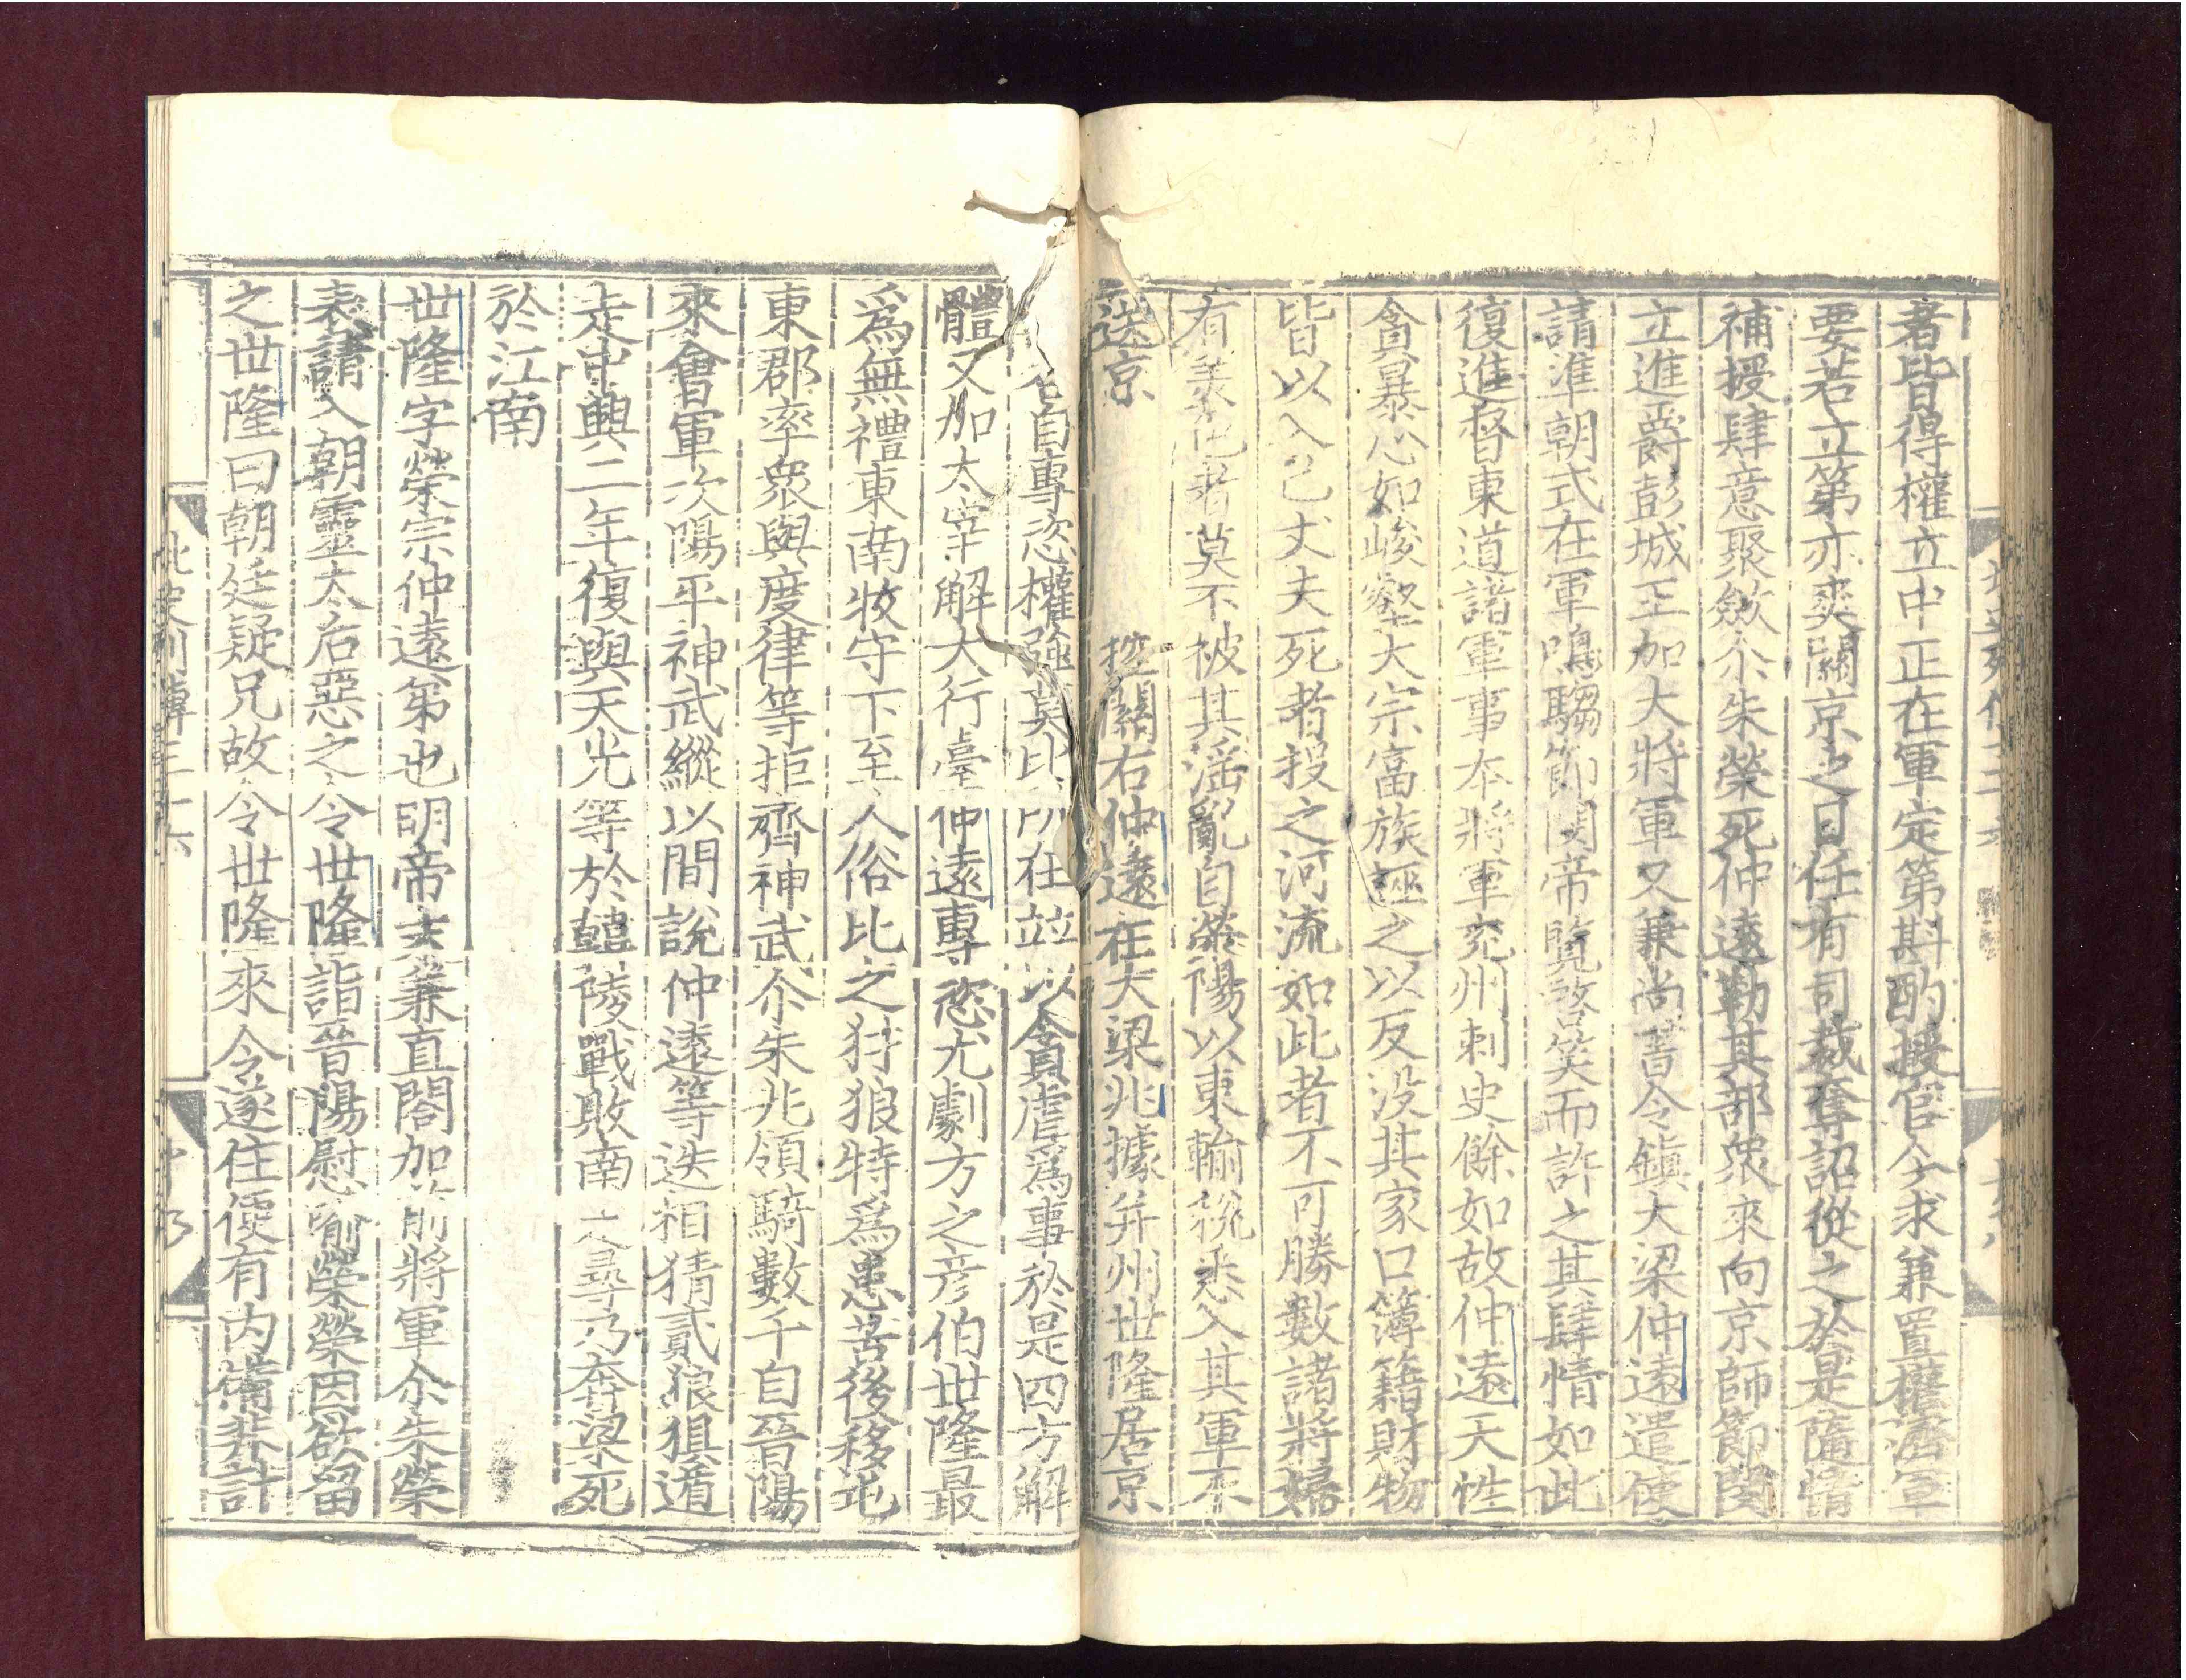 者皆得權立中正在軍定第斟酌授官今求兼置權濟軍
要若立第亦爽關京之日任有司裁奪詔從之於是隨情
補授肆意聚斂尒朱榮死仲遠勒其部衆來向京師節閔
立進爵彭城王加大將軍又兼尚書令鎮大梁仲遠遣使
請準朝式在軍鳴騶節閔帝覽啓笑而許之其肆情如此
復進督東道諸軍事本將軍兖州刺史餘如故仲遠天性
貪暴心如峻壑大宗富族誣之以反没其家口簿籍財物
皆以入己丈夫死者投之河流如此者不可勝數諸將婦
有美色者莫不被其滛亂自滎陽以東輸稅悉入其軍不
送京 控關右仲遠在大梁兆據并州世隆居京
各自專恣權強莫比所在並以貪虐爲事於是四方解
體又加太宰解大行臺仲遠專恣尤劇方之彦伯世隆最
爲無禮東南牧守下至人俗比之犲狼特爲患苦後移屯
東郡率衆與度律等拒齊神武尒朱兆領騎數千自晉陽
來會軍次陽平神武縱以間說仲遠等迭相猜貳狼狽遁
走中興二年復與天光等於韓陵戰敗南走尋乃奔梁死
於江南
世隆字榮宗仲遠第也明帝末兼直閤加前將軍尒朱榮
表請入朝靈太后惡之令世隆詣晉陽慰喻榮榮因欲留
之世隆曰朝廷疑兄故令世隆來今遂住便有内備非計
北史列傳三十六
十九